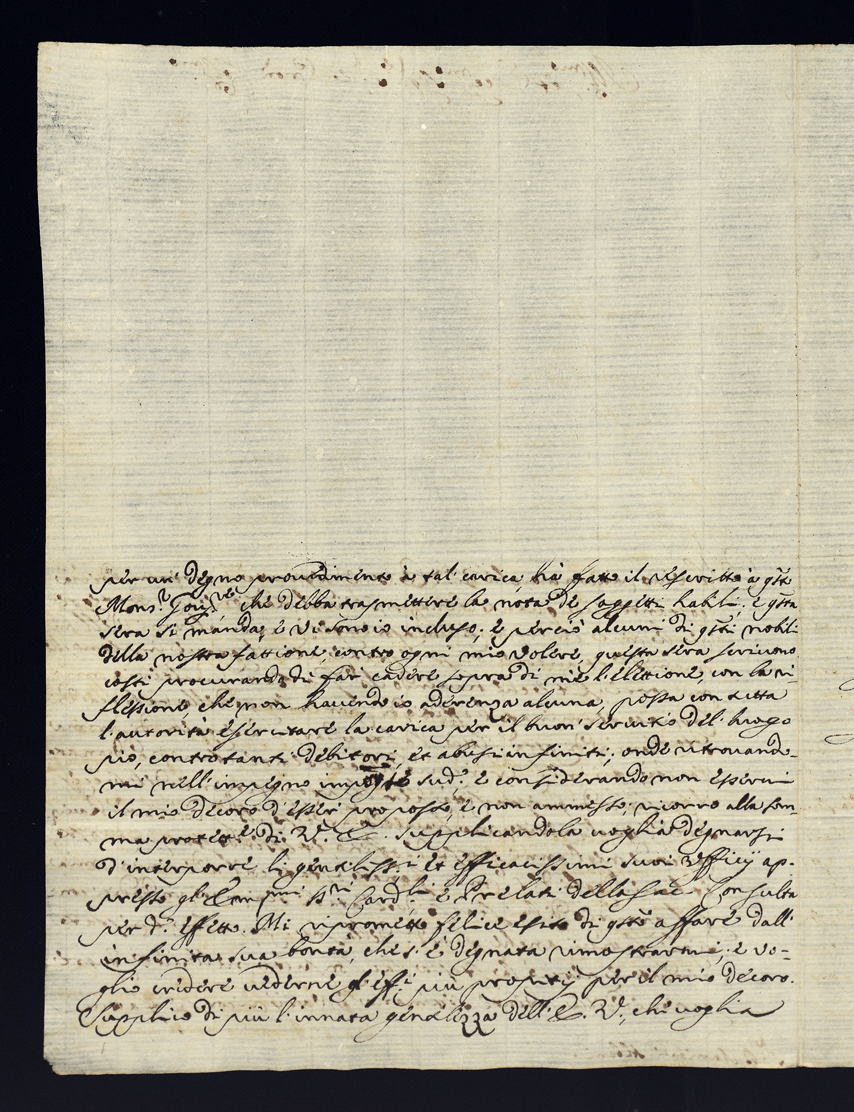 per un' degno provedimento à tal' carica, hà fatto il rescritto à q.sto
Mons.r Gov.re che debba trasmettere la nota de soggetti habili, e q.sta
sera si manda, e vi sono io incluso; e perciò alcuni di q.sti nobili
della nostra fattione, contro ogni mio volere, questa sera scrivono
costì procurando di far' cadere sopra di me l'elettione, con la ri-
flessione, che non havendo io aderenza alcuna, possa con tutta
l'autorità esercitare la carica per il buon' servitio del' luogo
pio, contro tanti debitori, et abusi infiniti; onde ritrovando-
mi nell'impegno sud.o e considerando non esservi
il mio decoro d'esser' proposto, e non ammesso, ricorro alla som-
ma protett.e di V. E. supplicandola voglia degnarsi
d'interporre li gentiliss.i et efficacissimi suoi Ufficij ap-
presso gl'Em.mi SS.ri Card.li e Prelati della Sac. Consulta
per d.o effetto. Mi riprometto felice esito di q.sto affare dall'
infinita sua bontà, che s'è degnata rimostrarmi, e vo-
glio credere vederne gl'eff.i più propitij per il mio decoro.
Supplico di più l'innata gentilezza dell'E. V., che voglia